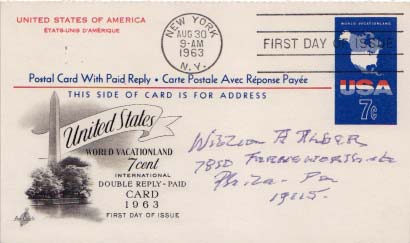 UNITED STATES OF AMERICA
ÉTATS-UNIS D'AMÉRIQUE
NEW YORK
AUG 30
9-AM
1963
N.Y.
FIRST DAY OF ISSUE
WORLD VACATIONLAND
USA
7¢
Postal Card With Paid Reply • Carte Postale Avec Réponse Payée
THIS SIDE OF CARD IS FOR ADDRESS
United States
WORLD VACATIONLAND
7cent
INTERNATIONAL
DOUBLE REPLY-PAID
CARD
1963
FIRST DAY OF ISSUE
William A
Phila. Pa
19115.